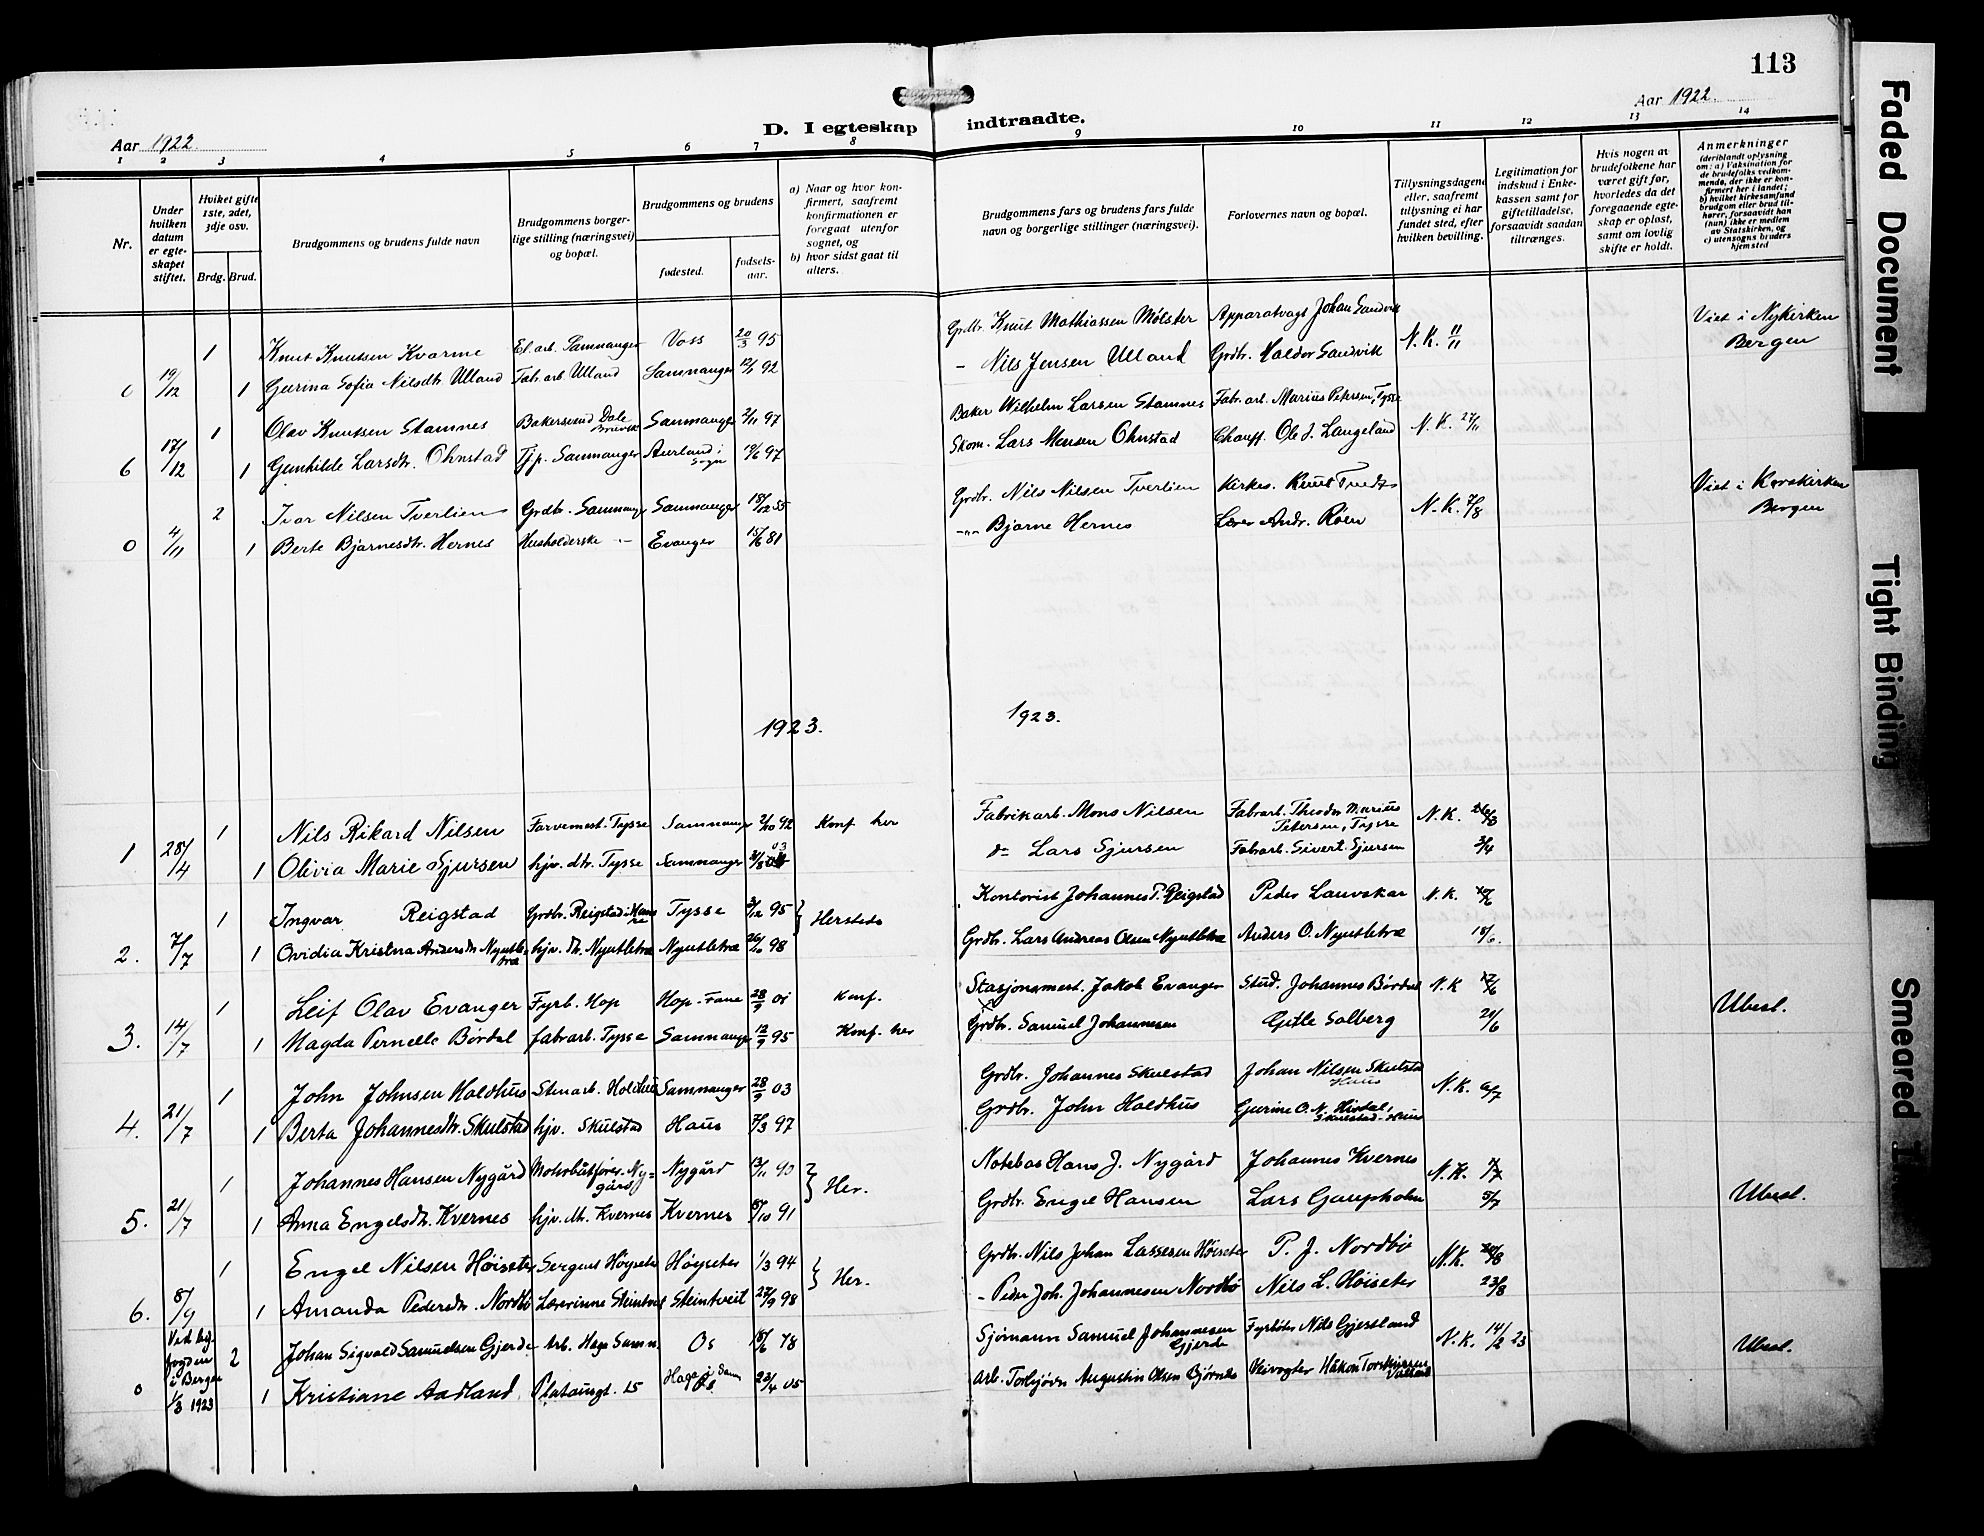 113
Aar 1922.
Aar 1922.
D. I egteskap indtraadte.
1 2 3 4 5 6 7 8 9 10 11 12 13 14
Nr.
Under hvilken datum er egteskapet stiftet.
Hvilket gifte 1ste, 2det, 3dje osv.
Brdg. Brud.
Brudgommens og brudens fulde navn
Brudgommens borgerlige stilling (næringsvei) og bopæl.
Brudgommens og brudens
fødested.
fødselsaar.
a) Naar og hvor konfirmert, saafremt konfirmationen er foregaat utenfor sognet, og
b) hvor sidst gaat til alters.
Brudgommens fars og brudens fars fulde navn og borgerlige stillinger (næringsvei).
Forlovernes navn og bopæl.
Tillysningsdagene eller, saafremt tillysning ei har fundet sted, efter hvilken bevilling.
Legitimation for indskud i Enkekassen samt for giftetilladelse, forsaavidt saadan tiltrænges.
Hvis nogen av brudefolkene har været gift før, hvorledes da det foregaaende egteskap er opløst, samt om lovlig skifte er holdt.
Anmerkninger
(deriblandt oplysning om: a) Vaksination for de brudefolks vedkommende, der ikke er konfirmert her i landet; b) hvilket kirkesamfund brudgom eller brud tilhører, forsaavidt han (hun) ikke er medlem av Statskirken, og c) utensogns bruders hjemsted
1 Knut Knutsen Kvarme El. arb. Samnanger Voss 20/3 95 Grdbr. Knut Mathiassen Mølster Apparatvagt Johan Sandvik N. K. 11/11 Viet i Nykirken Bergen
0 19/12 1 Gurina Sofia Nilsdtr. Ulland Fabr. arb. Ulland Samnanger 12/1 92 - Nils Jensen Ulland Grdbr. Haldor Sandvik
1 Olav Knutsen Stamnes Bakersvend Dale Bruvik Samnanger 2/11 97 Baker Wilhelm Larsen Stamnes Fabr. arb. Marius Petersen, Tysse N. K. 27/11
6 17/12 1 Gunhilde Larsdtr. Ohnstad Tjp. Samnanger Aurland i Sogn 19/6 97 Skom. Lars Monsen Ohnstad Chauff. Ole J. Langeland
2 Ivar Nilsen Tverlien Grdbr. Samnanger Samnanger 18/12 55 Grdbr. Nils Nilsen Tverlien Kirkes. Knut N. K. 7/8 Viet i Korskirken Bergen
0 4/11 1 Berte Bjarnesdtr. Hernes Husholderske -"- Evanger 15/6 81 -"- Bjarne Hernes Lærer Andr. Røen
1923. 1923.
1 Nils Rikard Nilsen Farvemest. Tysse Samnanger 2/10 92 Konf her Fabrikarb. Mons Nilsen Fabrarb. Theodor Marius Petersen, Tysse N. K.
1 28/4 1 Olivia Marie Sjursen hjv. dtr. Tysse Samnanger 03 do Lars Sjursen Fabrarb. Sivert Sjursen 3/4
1 Ingvar Reigstad Grdbr. Reigstad i Hamre Tysse 3/12 95 Herstede Kontorist Johannes P. Reigstad Peder Lauvskar N. K.
2. 7/7 1 Ovidia Kristina Andersdtr Nyutletræ hjv. dt. Nyutletræ Nyutletræ 26/10 98 Grdbr. Lars Andreas Olsen Nyutletræ Anders O. Nyutletræ 18/6.
1 Leif Olav Evanger Fyrb. Hop Hop - Fane 28/9 01 Konf. Stasjonsmest. Jakob Evanger Stud. Johannes Børdal N. K
3. 14/7 1 Magda Pernelle Børdal fabrarb. Tysse Samnanger 12/9 95 Konf. her Grdbr. Samuel Johannesen Gitle Solberg 21/6 Ubesl.
1 John Johnsen Holdhus Stenarb. Holdhus Samnanger 28/9 03 Grdbr. Johannes Skulstad Johan Nilsen Skulstad Haus N. K. 6/7
4. 21/7 1 Berta Johannesdtr. Skulstad hjv. Skulstad Haus 7/3 97 Grdbr. John Holdhus Gjurine O. N. Hisdal, Skulstad - Haus
1 Johannes Hansen Nygård Motorbåtfører. Nygård Nygård 13/11 90 Her. Notebas Hans J. Nygård Johannes Kvernes N. K.
5. 21/7 1 Anna Engelsdtr. Kvernes hjv. dt. Kvernes Kvernes 8/10 91 Grdbr. Engel Hansen Lars Gaupholm 5/7 Ubesl.
1 Engel Nilsen Høiseter Sergent Høyseter Høyseter 1/3 94 Her. Grdbr. Nils Johan Lassesen Høiseter P. J. Nordbø N. K.
6. 8/9 1 Amanda Pedersdtr. Nordbø Lærerinne Steintveit Steintveit 27/9 98 - Peder Joh. Johannesen Nordbø Nils L. Høiseter 23/8
Ved byfogden i Bergen 1/3 1923
2 Johan Sigvald Samuelsen Gjerde Arb. Haga Samn. Os 18/6 78 Sjømann Samuel Johannesen Gjerde Fyrbøter Nils Gjersland N. K. 14/2 23 Ubesl.
0 1 Kristiane Aadland Platoungt. 15 Haga i Samn Os 23/4 05 Arb. Torbjørn Augustin Olsen Bjørnes Veivogter Håkon
Faded Document
Tight Binding
Smeared